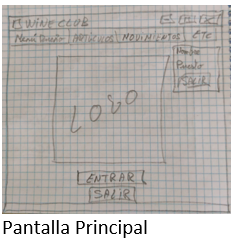 WINE CLUB
Menú Usuario ARTICULOS MOVIMIENTOS ETC
Nombre
Puesto
SALIR
LOGO
ENTRAR
SALIR
Pantalla Principal